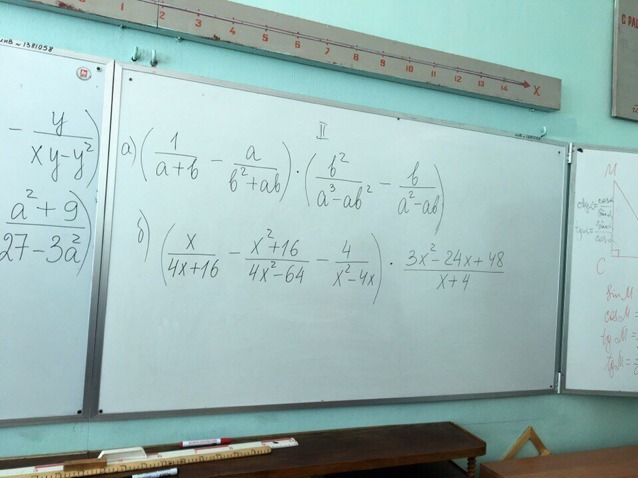 0 1 2 3 4 5 6 7 8 9 10 11 12 13 14 X
ИНВ № 1381058
- y/(xy-y²))
(a²+9)/(27-3a²))
II
а) (1/(a+b) - a/(b²+ab)) · (b²/(a³-ab²) - b/(a²-ab))
б) (x/(4x+16) - (x²+16)/(4x²-64) - 4/(x²-4x)) · (3x²-24x+48)/(x+4)
M
C